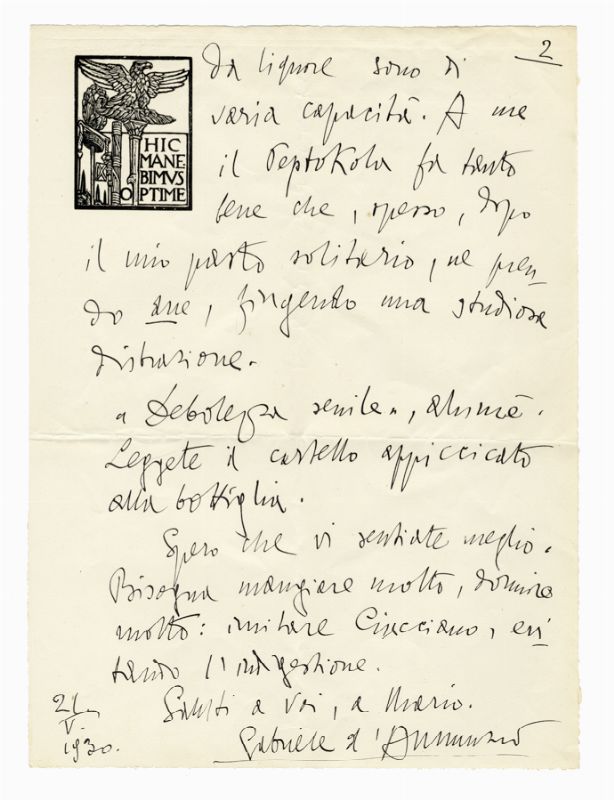 2
HIC
MANE
BIMVS
OPTIME
da liquore sono di
varia capacità. A me
il PeptoKola fa tanto
bene che, spesso, dopo
il mio pasto solitario, ne pren-
do due, fingendo una studiosa
distrazione.
"Debolezza senile", ahimè.
Leggete il cartello appiccicato
alla bottiglia.
Spero che vi sentiate meglio.
Bisogna mangiare molto, dormire
molto: imitare Ciacciano, evi
tando l'indigestione.
Saluti a voi, a Mario.
21
V.
1930.
Gabriele d'Annunzio